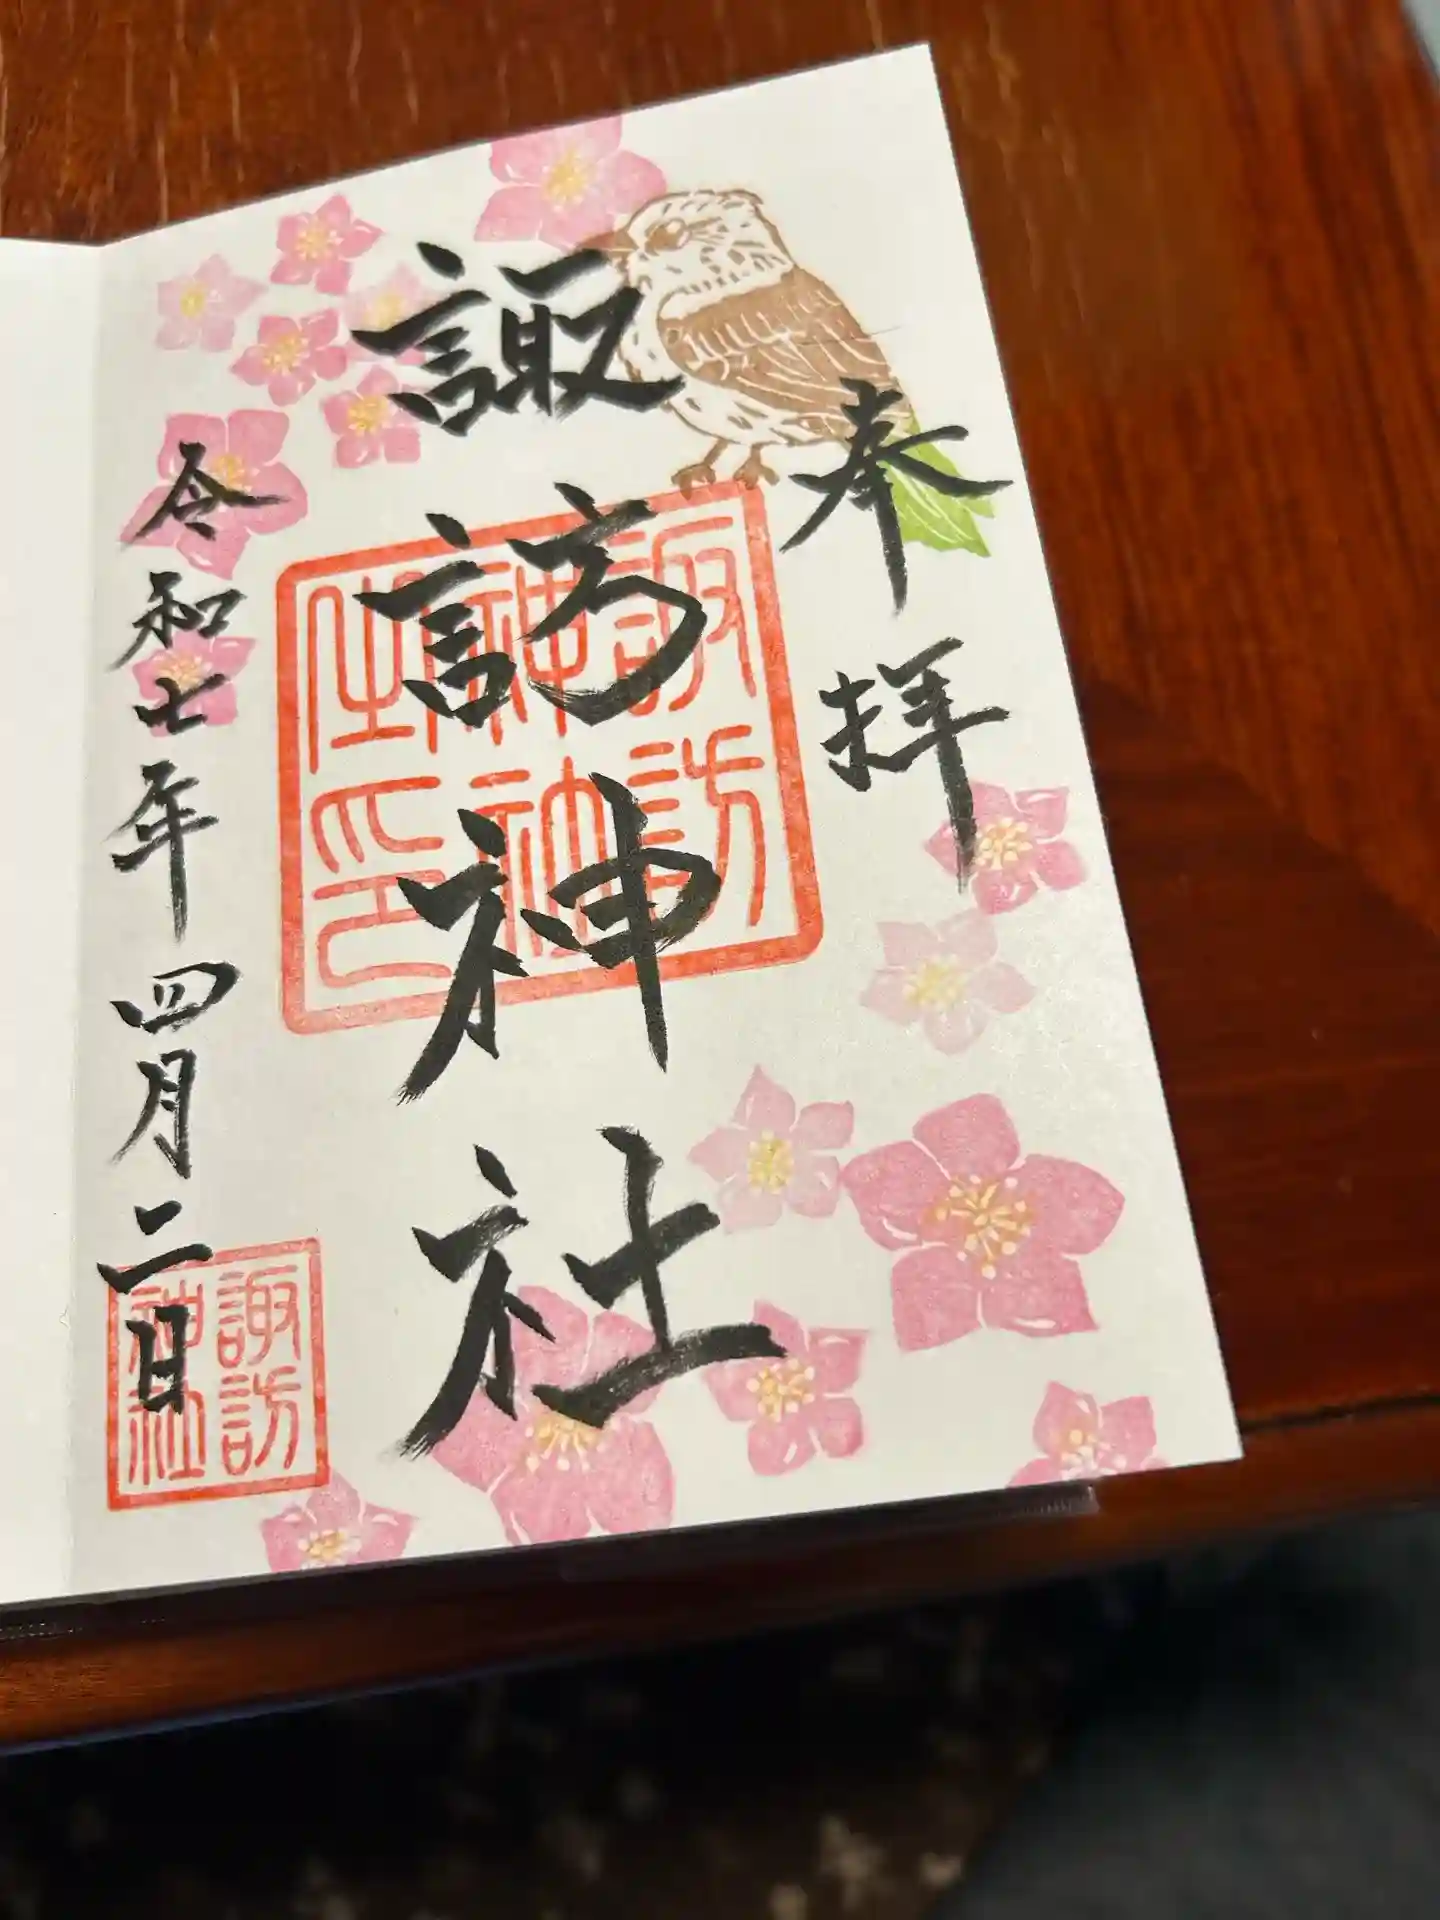 奉拝
諏訪神社
諏訪
神社
之印
令和七年四月二日
諏訪
神社